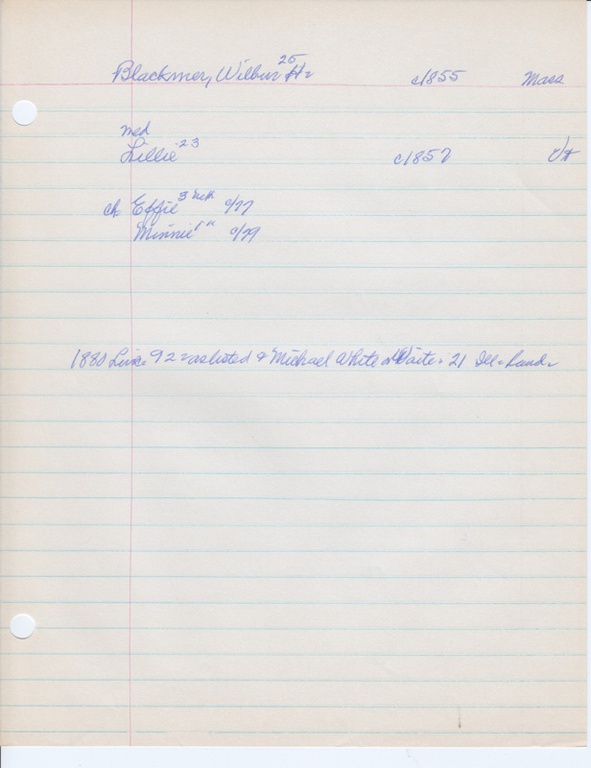 Blackmer, Wilbur H 25 c1855 Mass
md
Lillie 23 c1857 Vt
ch Effie 3 c/77
Minnie 1 " c/79
1880 Live 92 as listed & Michael White or Waite 21 Ill